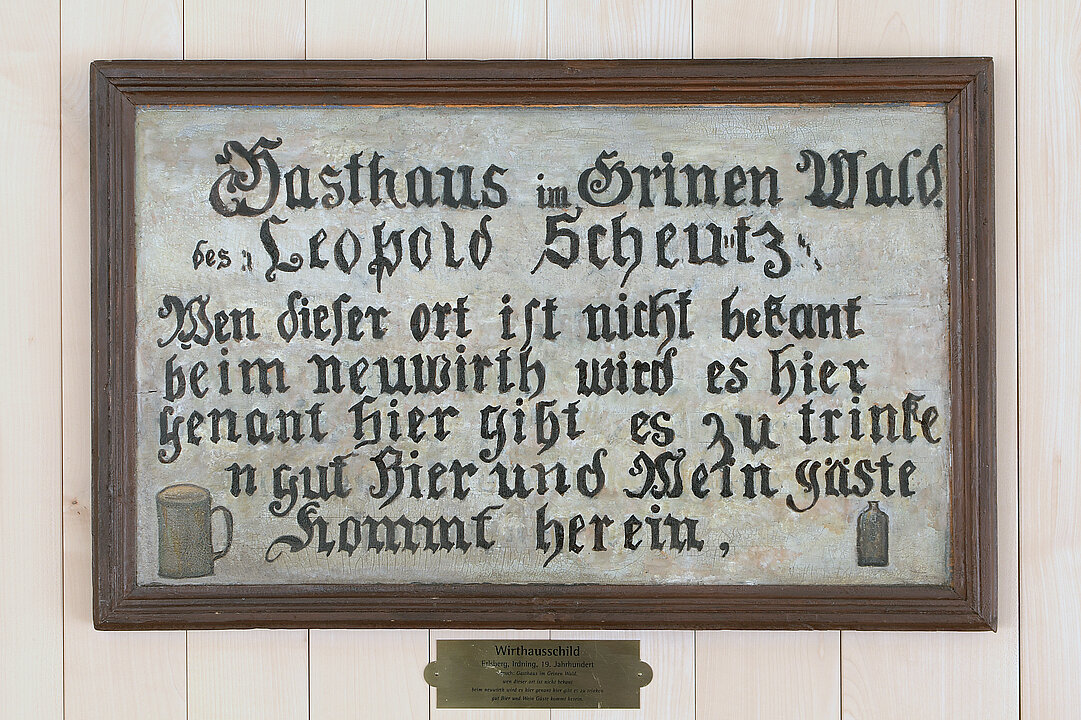 Gasthaus im Grinen Wald.
des „Leopold Scheutz“
Wen dieser ort ist nicht bekant
beim neuwirth wird es hier
genant hier giht es zu trinke
n gut Bier und Wein gäste
kommt herein,
Wirthausschild
Irdning, 19. Jahrhundert
Gasthaus im Grinen Wald,
wen dieser ort ist nicht bekant
beim neuwirth wird es hier genant hier gibt es zu trinken
gut Bier und Wein Gäste kommt herein.